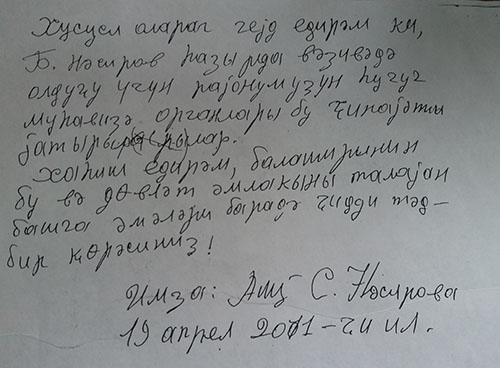 Хүсусл олараг гејд едирәм ки,
Б. Нәсиров һазырда вәзивәдә
олдуғу үчүн рајонумузун һүгуг
муһавизә органлары бу ҹинајәти
јатырыр(ды)лар.
Хаһиш едирәм, баламшилнин
бу вә дөвләт әмлакыны талајан
башга әмәләји барәдә ҹидди тәд-
бир көрәсиниз!
Имза: С. Нәсирова
19 апрел 2011-ҹи ил.